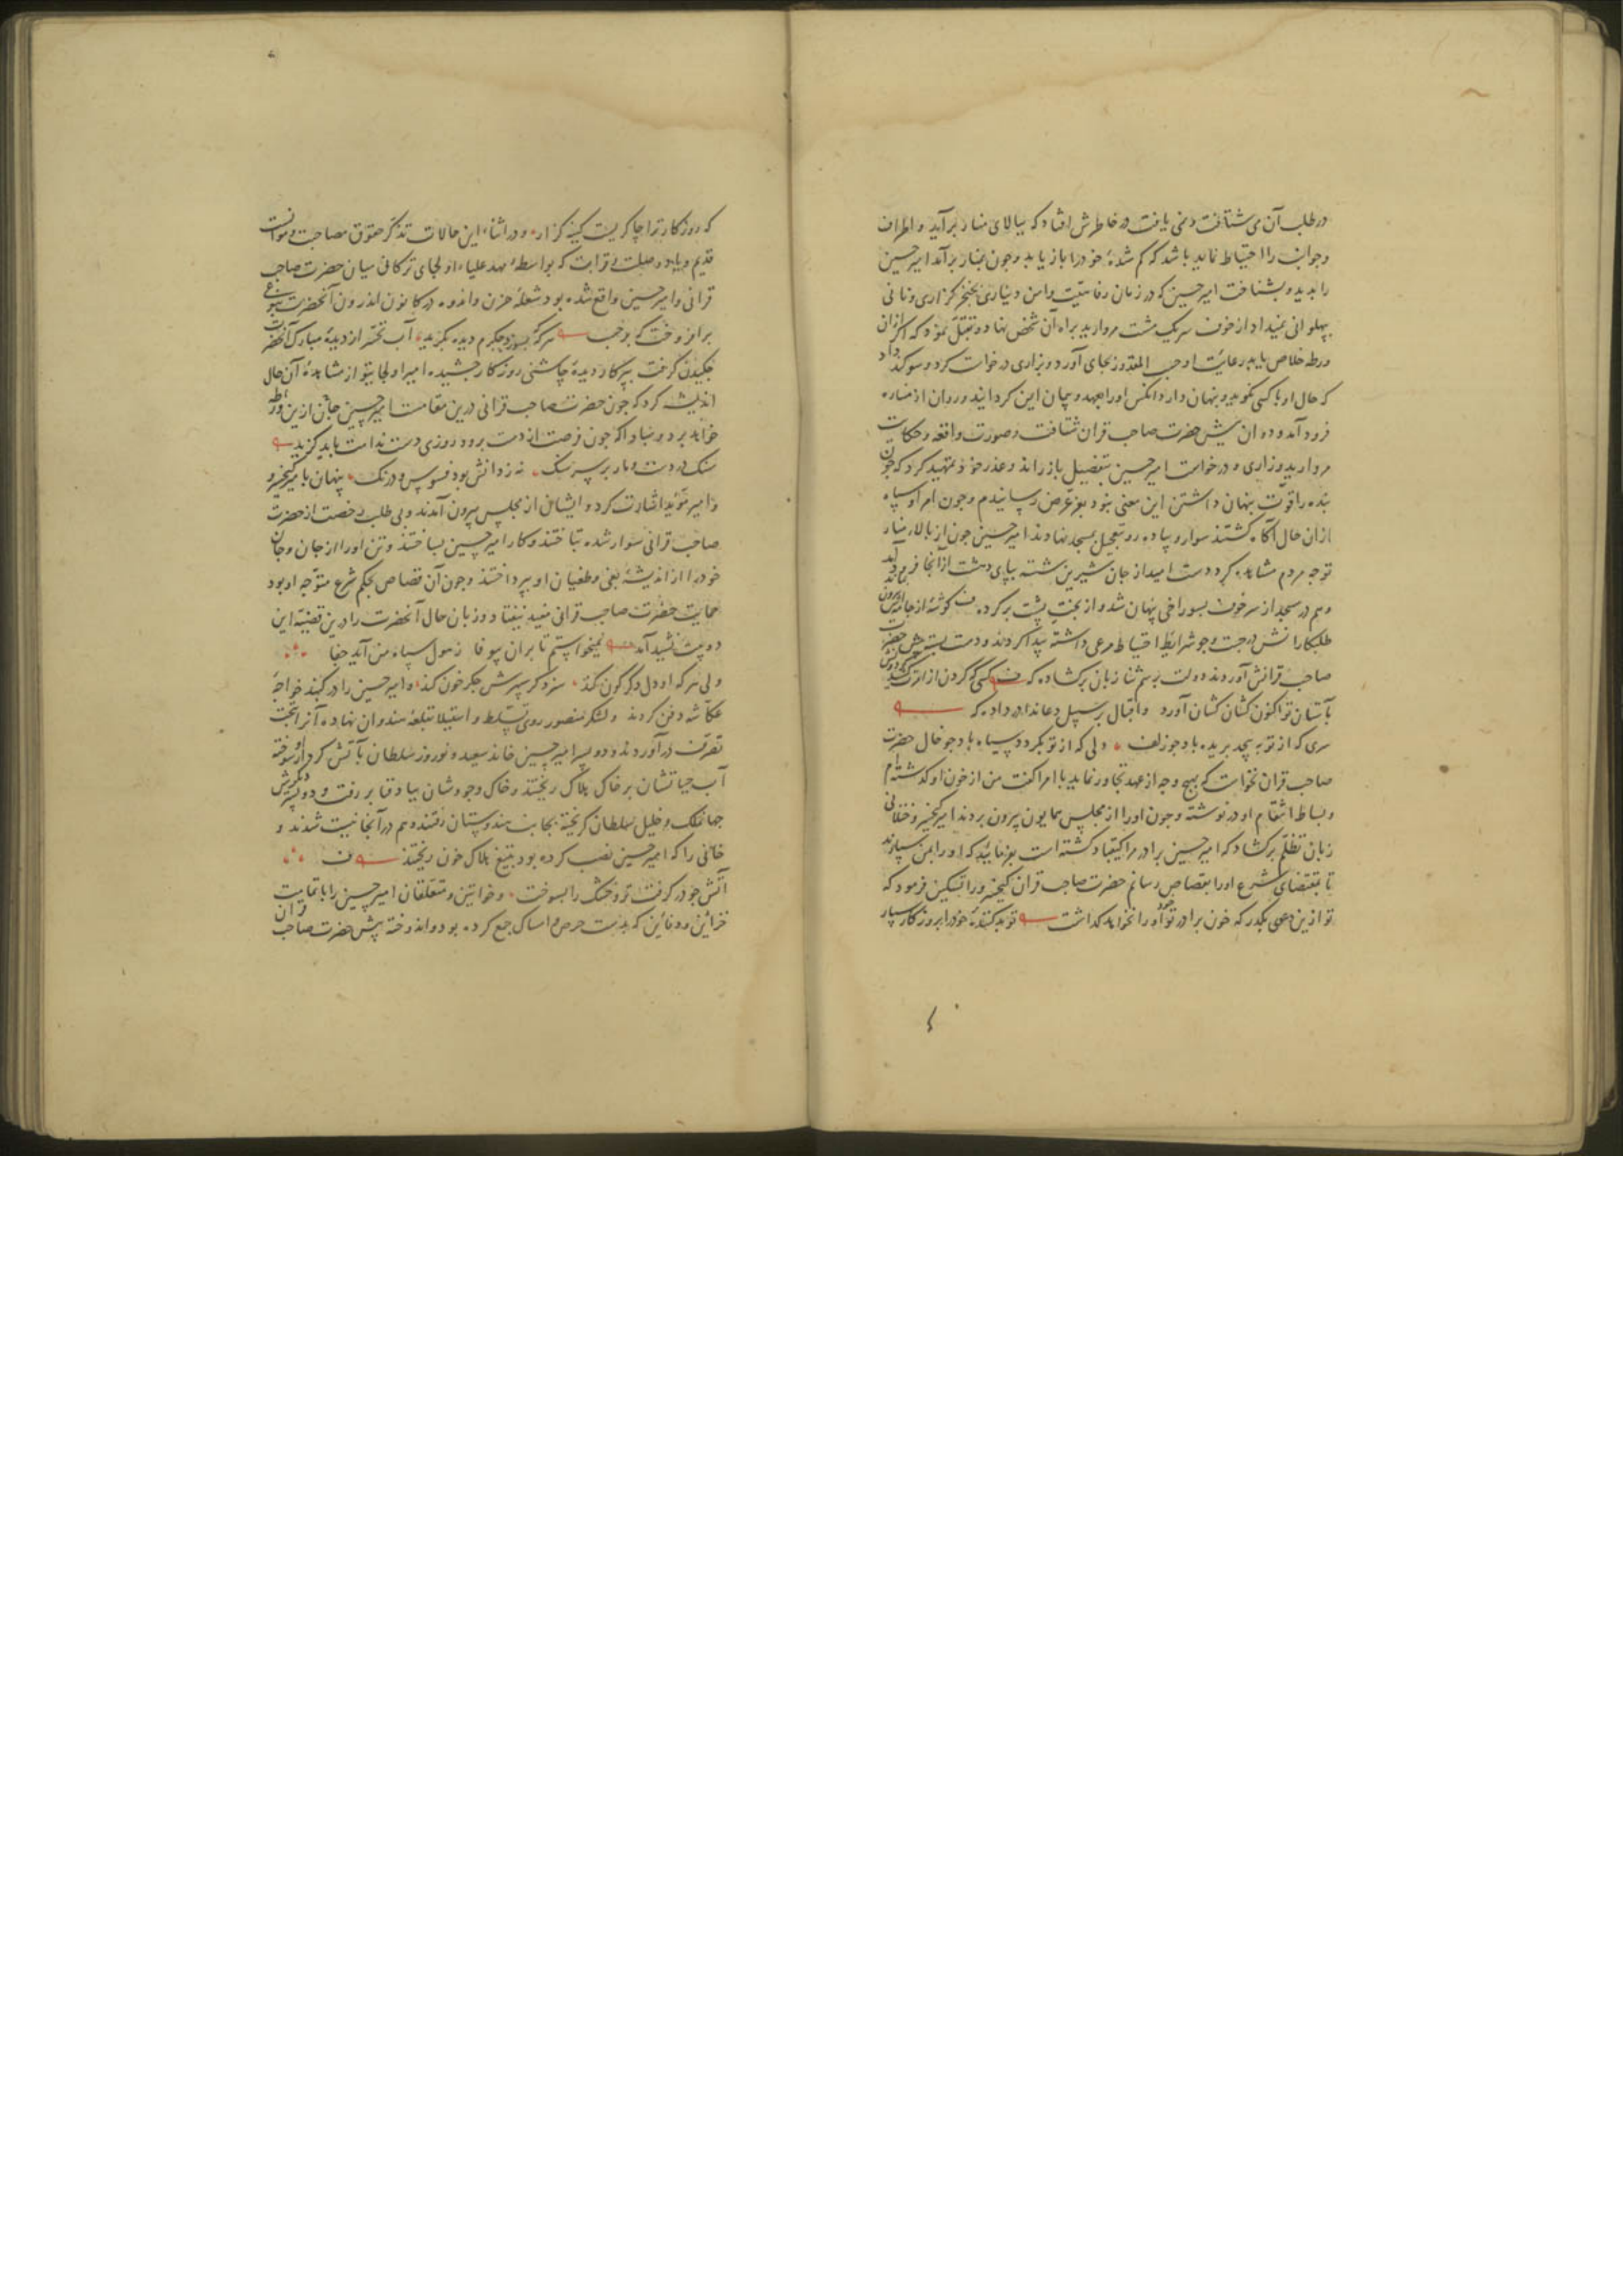 در طلب آن می شتافت و نمی یافت در خاطرش افتاد که ببالای منار برآید و اطراف
و جوانب را احتیاط نماید باشد که کم شدهٔ خود را باز یابد و چون بمنار برآمد امیر حسین
را بدید و بشناخت امیر حسین که در زمان رفاهیت و امن دیناری بخنجر گزاری و نانی
بپهلوانی نمیداد از خوف سر یک مشت مروارید براه آن شخص نهاد و تقبل نمود که اگر ازان
ورطه خلاص یابد رعایت او حسب المقدور بجای آورد و بزاری درخواست کرد و سوگند داد
که حال او با کسی نگوید و پنهان دارد انکس او را بعهد و پیمان ایمن گردانید و روان از مناره
فرود آمد و دوان پیش حضرت صاحب قران شتافت و صورت واقعه و حکایت
مروارید و زاری و درخواست امیر حسین بتفصیل باز راند و عذر خود تمهید کرد که چون
بنده را قوت پنهان داشتن این معنی نبود بعز عرض رسانیدم و چون امرا و سپاه
ازان حال آگاه گشتند سوار و پیاده رو بتعجیل بمسجد نهادند امیر حسین چون از بالای منار
توجه مردم مشاهده کرد دست امید از جان شیرین شسته بپای دهشت ازانجا فرود آمد
و هم در مسجد از سر خوف بسوراخی پنهان شد و از بخت پشت بر کرده گوشهٔ از جامه‌اش بیرون ماند
طلبکارانش در جست و جو شرایط احتیاط مرعی داشته پیدا کردند و دست بسته پیش حضرت
صاحب قرانش آوردند دولت برسم ثنا زبان برگشاده که کسی که گردن از امرت کشید
بآستان تو اکنون کشان کشان آورد و اقبال بر سبیل دعا ندا در داد که
سری که از تو بپیچد بریده باد چو زلف دلی که از تو بگردد سیاه باد چو خال حضرت
صاحب قران نخواست که بهیچ وجه از عهد تجاوز نماید با امرا گفت من از خون او گذشته‌ام
و بساط انتقام او در نوشته و چون او را از مجلس همایون بیرون بردند امیر کیخسرو ختلانی
زبان تظلم برگشاد که امیر حسین برادر مرا کیقباد کشته است بفرمایید که او را بمن سپارند
تا بمقتضای شرع او را بقصاص رسانم حضرت صاحب قران کیخسرو را تسکین فرمود که
تو ازین دعوی بگذر که خون برادر تو او را نخواهد گذاشت تو بدکنندهٔ خود را بروزگار سپار
که روزگار ترا چاکریست کینه گزار و در اثناء این حالات تذکر حقوق مصاحبت و موانست
قدیم و صلت قرابت که بواسطهٔ مهد علیاء اولجای ترکان میان حضرت صاحب
قرانی و امیر حسین واقع شده بود شعلهٔ حزن و اندوه در کانون اندرون آنحضرت
بر افروخت که بموجب هر گه بسوزد جگرم دیده بگرید آب تحسر از دیدهٔ مبارک آنحضرت
چکیدن گرفت پیر کار دیدهٔ چاشنی روزگار چشیده امیر اولجایتو از مشاهدهٔ آن حال
اندیشه کرد که چون حضرت صاحب قرانی درین مقامست امیر حسین جان ازین ورطه
خواهد برد و مبادا که چون فرصت از دست برود روزی دست ندامت باید گزید
سنگ در دست و مار بر سر سنگ نه ز دانش بود فسوس و درنگ پنهان با میر کیخسرو
و امیر موید اشارت کرد و ایشان از مجلس بیرون آمدند و بی طلب رخصت از حضرت
صاحب قرانی سوار شده بتاختند و کار امیر حسین بساختند و تن او را از جان و جان
خود را از اندیشهٔ بغی و طغیان او بپرداختند و چون آن قصاص بحکم شرع متوجه او بود
حمایت حضرت صاحب قرانی مفید نیفتاد و زبان حال آنحضرت را درین قضیه این
دو بیت نشید آمد نمیخواستم تا بران بیوفا ز هول سپاه من آید جفا
ولی هر که او دل دگرگون کند سزد گر سپهرش جگر خون کند و امیر حسین را در گنبد خواجه
عکاشه دفن کردند و لشکر منصور روی تسلط و استیلا بقلعه هندوان نهاده آنرا بتحت
تصرف در آوردند و دو پسر امیر حسین خاند سعید و نوروز سلطان بآتش کردار سوخته
آب حیاتشان بر خاک هلاک ریختند و خاک وجودشان بباد فنا بر رفت و دو پسر دیگرش
جهانملک و خلیل سلطان گریخته بجانب هندوستان رفتند و هم در آنجا نیست شدند و
خانی را که امیر حسین نصب کرده بود بتیغ هلاک خون ریختند
آتش چو در گرفت تر و خشک را بسوخت و خواتین و متعلقان امیر حسین را با تمامیت
خزاین و دفاین که بدست حرص و امساک جمع کرده بود و اندوخته پیش حضرت صاحب قران